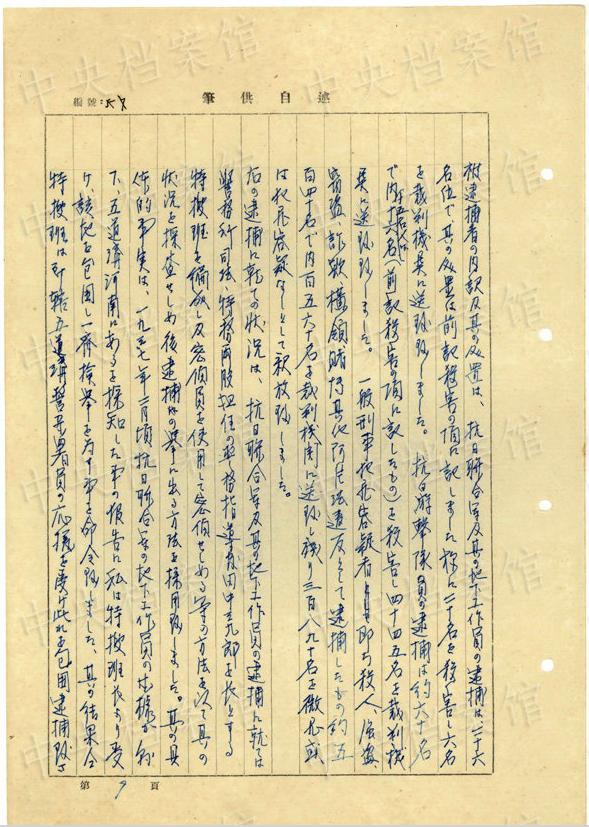 述自供筆
編號:
村逮捕者の内訳及其の処置は、抗日聯合軍及其の地下工作員の逮捕は、二十六
名位で其の処置は前記殺害の項に記しました様に二十名を殺害し六名
を裁判機関に送致致しました。抗日游撃隊員の逮捕は約六十名
で内十五名は(前記殺害の項に記したもの)を殺害し四十五名を裁判機
関に送致致しました。一般刑事犯容疑者即ち殺人、強盗、
窃盗、詐欺、横領、賭博其の他阿片法違反として逮捕したもの約五
百四十名で内百五六十名を裁判機関に送致し残り三百八九十名を微罪或
は犯罪容疑なしとして釈放致しました。
右の逮捕に就ての状況は、抗日聯合軍及其の地下工作員の逮捕に就ては
警務科司法、特務両股担任の警務指導官田中三郎を長とする
特捜班を編成し及密偵員を使用して密偵せしめる等の方法を以て其の
状況を探査せしめ後逮捕の挙に出る方法を採用致しました。其の具
体的事実は、一九三七年二月頃抗日聯合軍の地下工作員の
下、五道溝河南にあるを探知した事の報告に私は特捜班長より受
け、該地を包囲し一斉検挙を為す事を命令致しました、其の結果
特捜班は引轄五道溝警察署員の応援を受け此れを包囲逮捕致
第 9 頁
中央档案馆